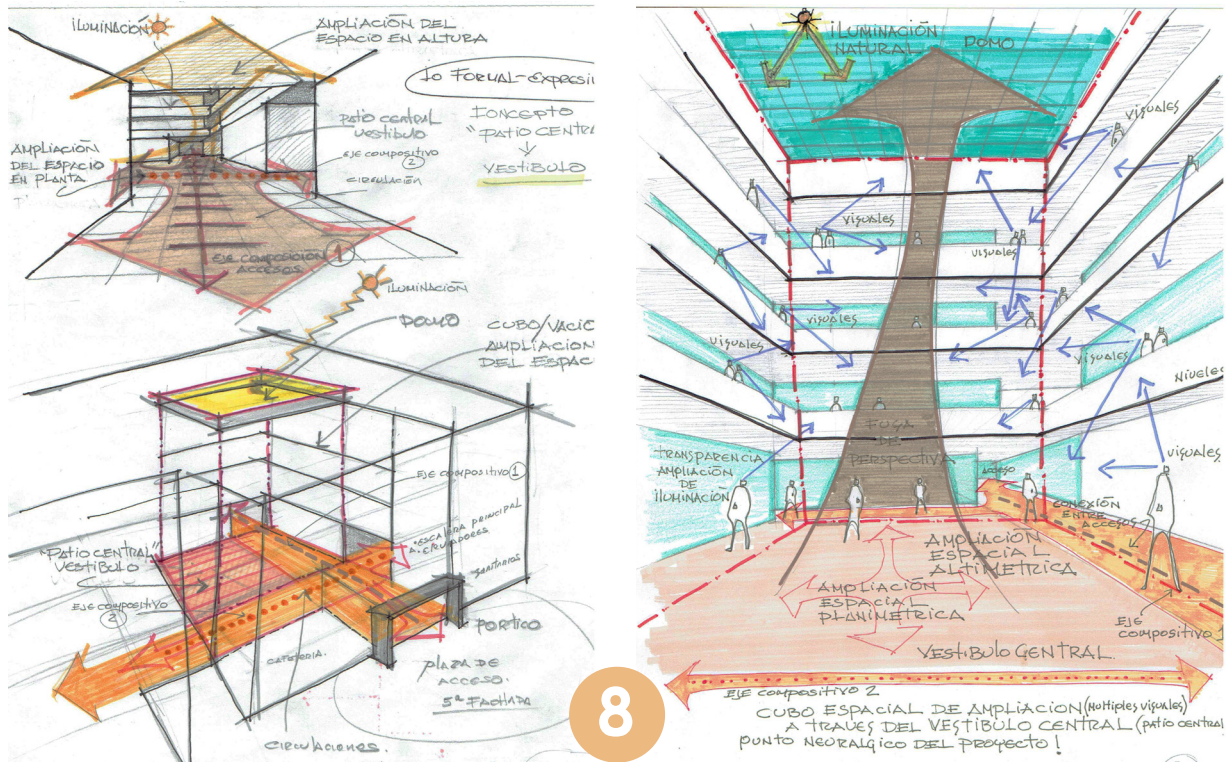 ILUMINACIÓN
AMPLIACIÓN DEL
ESPACIO EN ALTURA
LO FORMAL-EXPRESI
PATIO CENTRAL
VESTIBULO
CONCEPTO
"PATIO CENTRA
VESTIBULO
EJE COMPOSITIVO
2
CIRCULACIÓN
AMPLIACIÓN
DEL ESPACIO
EN PLANTA
EJE COMPOSICIÓN 1
ACCESOS
ILUMINACIÓN
DOMO
CUBO/VACIO
AMPLIACION
DEL ESPAC
EJE COMPOSITIVO 1
ESCALERA PRINCIPAL
SANITARIOS
"PATIO CENTRAL"
VESTIBULO
EJE COMPOSITIVO
2
CAFETERIA.
PORTICO
PLAZA DE
ACCESO.
5ª FACHADA
CIRCULACIONES.
ILUMINACIÓN
NATURAL
DOMO
VISUALES
VISUALES
VISUALES
VISUALES
VISUALES
VISUALES
NIVELES
VISUALES
FUGA
DE
PERSPECTIVA
TRANSPARENCIA
AMPLIACIÓN
DE
ILUMINACIÓN
ACCESO
CONEXIÓN
ENTRE
ACCESOS
AMPLIACIÓN
ESPACIAL
ALTIMETRICA
AMPLIACIÓN
ESPACIAL
PLANIMETRICA
EJE
COMPOSITIVO
VESTIBULO CENTRAL.
EJE COMPOSITIVO 2
CUBO ESPACIAL DE AMPLIACION (Multiples visuales)
A TRAVES DEL VESTIBULO CENTRAL (PATIO CENTRAL
PUNTO NEURALGICO DEL PROYECTO!
8